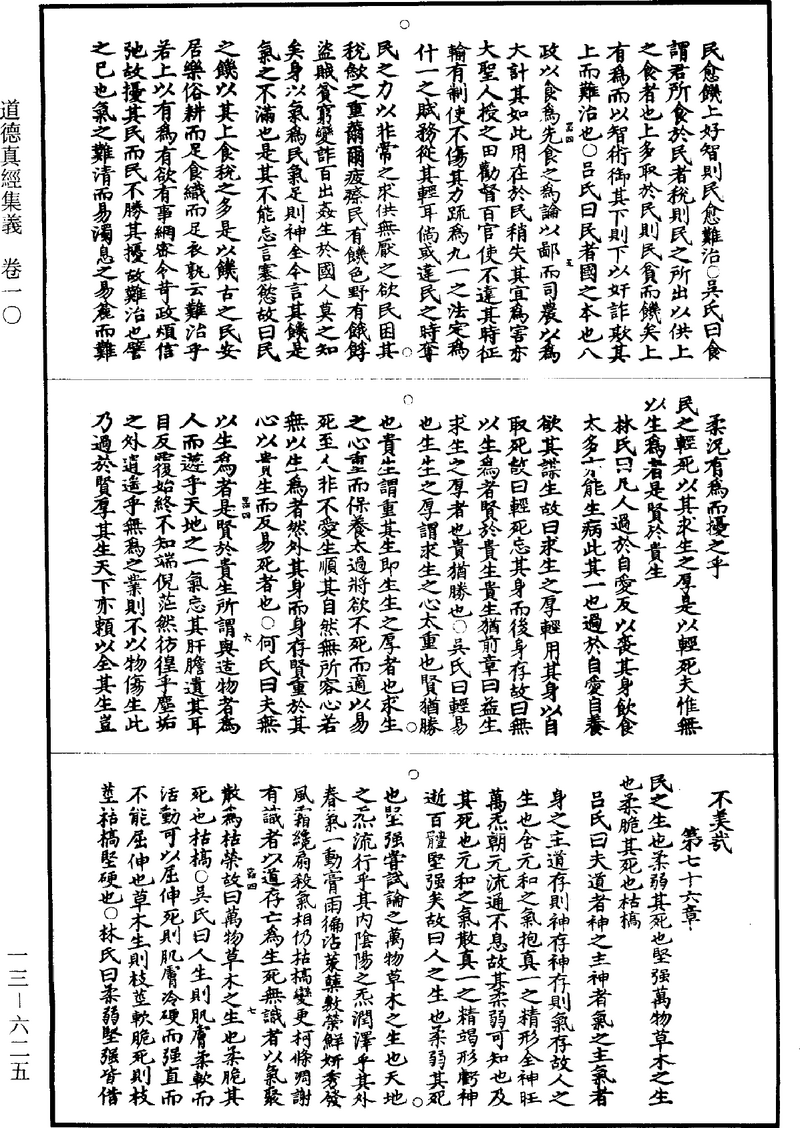 道德真經集義　卷一〇
民愈饑上好智則民愈難治○吳氏曰食
謂君所食於民者稅則民之所出以供上
之食者也上多取於民則民貧而饑矣上
有為而以智術御其下則下以奸詐欺其
上而難治也○呂氏曰民者國之本也八
政以食為先食之為論以鄙而司農以為
大計其如此用在於民稍失其宜為害亦
大聖人授之田勸督百官使不違其時征
輸有制使不傷其力疏為九一之法定為
什一之賦務從其輕耳倘或違民之時奪
民之力以非常之求供無厭之欲民困其
稅斂之重薾爾疲瘵民有饑色野有餓殍
盜賊貧窮變詐百出姦生於國人莫之知
矣身以氣為民氣足則神全今言其饑是
氣之不滿也是其不能忘言塞慾故曰民
之饑以其上食稅之多是以饑古之民安
居樂俗耕而足食織而足衣孰云難治乎
若上以有為有欲有事網密令苛政煩信
弛故擾其民而民不勝其擾故難治也譬
之已也氣之難清而易濁息之易麄而難
柔況有為而擾之乎
民之輕死以其求生之厚是以輕死夫惟無
以生為者是賢於貴生
林氏曰凡人過於自愛反以喪其身飲食
太多方能生病此其一也過於自愛自養
欲其謀生故曰求生之厚輕用其身以自
取死故曰輕死忘其身而後身存故曰無
以生為者賢於貴生貴生猶前章曰益生
求生之厚者也貴猶勝也○吳氏曰輕易
也生生之厚謂求生之心太重也賢猶勝
也貴生謂重其生即生生之厚者也求生
之心重而保養太過將欲不死而適以易
死至人非不愛生順其自然無所容心若
無以生為者然外其身而身存賢重於其
心以貴生而反易死者也○何氏曰夫無
以生為者是賢於貴生所謂與造物者為
人而遊乎天地之一氣忘其肝膽遺其耳
目反覆始終不知端倪茫然彷徨乎塵垢
之外逍遙乎無為之業則不以物傷生此
乃過於賢厚其生天下亦賴以全其生豈
不美哉
第七十六章
民之生也柔弱其死也堅强萬物草木之生
也柔脆其死也枯槁
呂氏曰夫道者神之主神者氣之主氣者
身之主道存則神存神存則氣存故人之
生也含元和之氣抱真一之精形全神旺
萬炁朝元流通不息故其柔弱可知也及
其死也元和之氣散真一之精竭形虧神
逝百體堅强矣故曰人之生也柔弱其死
也堅强嘗試論之萬物草木之生也天地
之炁流行乎其內陰陽之炁潤澤乎其外
春氣一動膏雨徧沾萊蘖敷榮鮮妍秀發
風霜纔肅殺氣相仍枯槁變更柯條凋謝
有識者以道存亡為生死無識者以氣聚
散為枯榮故曰萬物草木之生也柔脆其
死也枯槁○吳氏曰人生則肌膚柔軟而
活動可以屈伸死則肌膚冷硬而强直而
不能屈伸也草木生則枝莖軟脆死則枝
莖枯槁堅硬也○林氏曰柔弱堅强皆借
一三—六二五